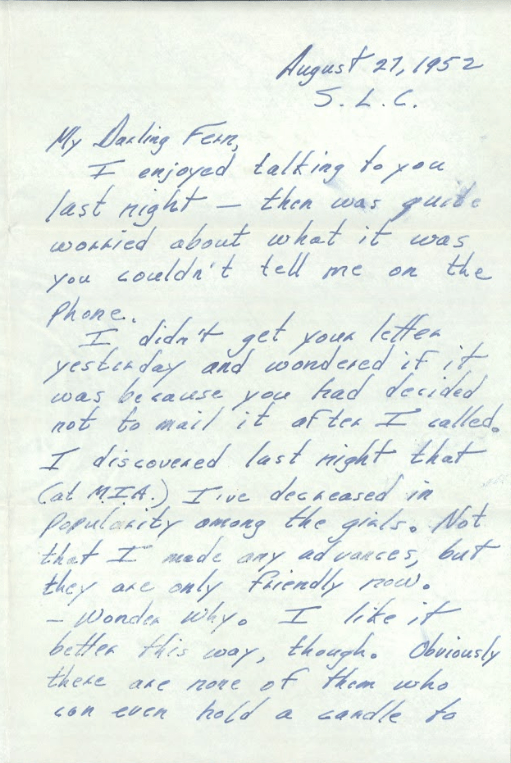 August 27, 1952
S. L. C.
My Darling Fern,
I enjoyed talking to you
last night — then was quite
worried about what it was
you couldn't tell me on the
phone.
I didn't get your letter
yesterday and wondered if it
was because you had decided
not to mail it after I called.
I discovered last night that
(at M.I.A.) I've decreased in
popularity among the girls. Not
that I made any advances, but
they are only friendly now.
- Wonder why. I like it
better this way, though. Obviously
there are none of them who
can even hold a candle to